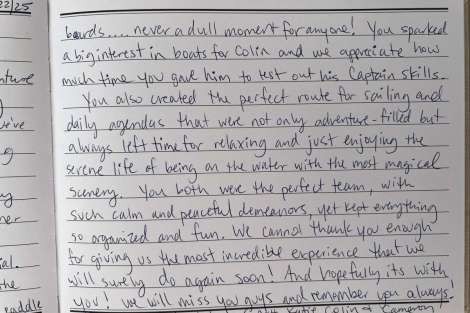 22/25
boards..... never a dull moment for anyone! You sparked
a big interest in boats for Colin and we appreciate how
much time you gave him to test out his Captain skills.
You also created the perfect route for sailing and
daily agendas that were not only adventure-filled but
always left time for relaxing and just enjoying the
serene life of being on the water with the most magical
scenery. You both were the perfect team, with
such calm and peaceful demeanors, yet kept everything
so organized and fun. We cannot thank you enough
for giving us the most incredible experience that we
will surely do again soon! And hopefully its with
you! We will miss you guys and remember you always!
Katie, Colin & Cameron
nture
we've
g
ner
ial.
the
paddle